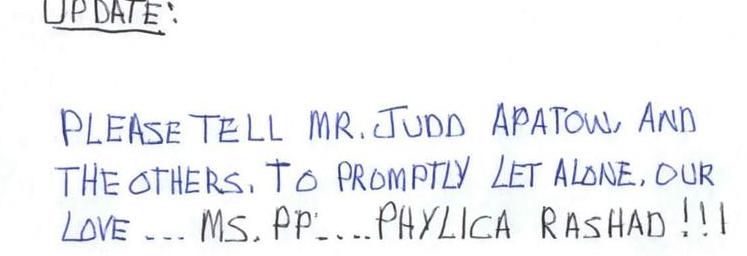 UPDATE:
PLEASE TELL MR. JUDD APATOW, AND
THE OTHERS, TO PROMPTLY LET ALONE, OUR
LOVE ... MS. PP....PHYLICA RASHAD !!!